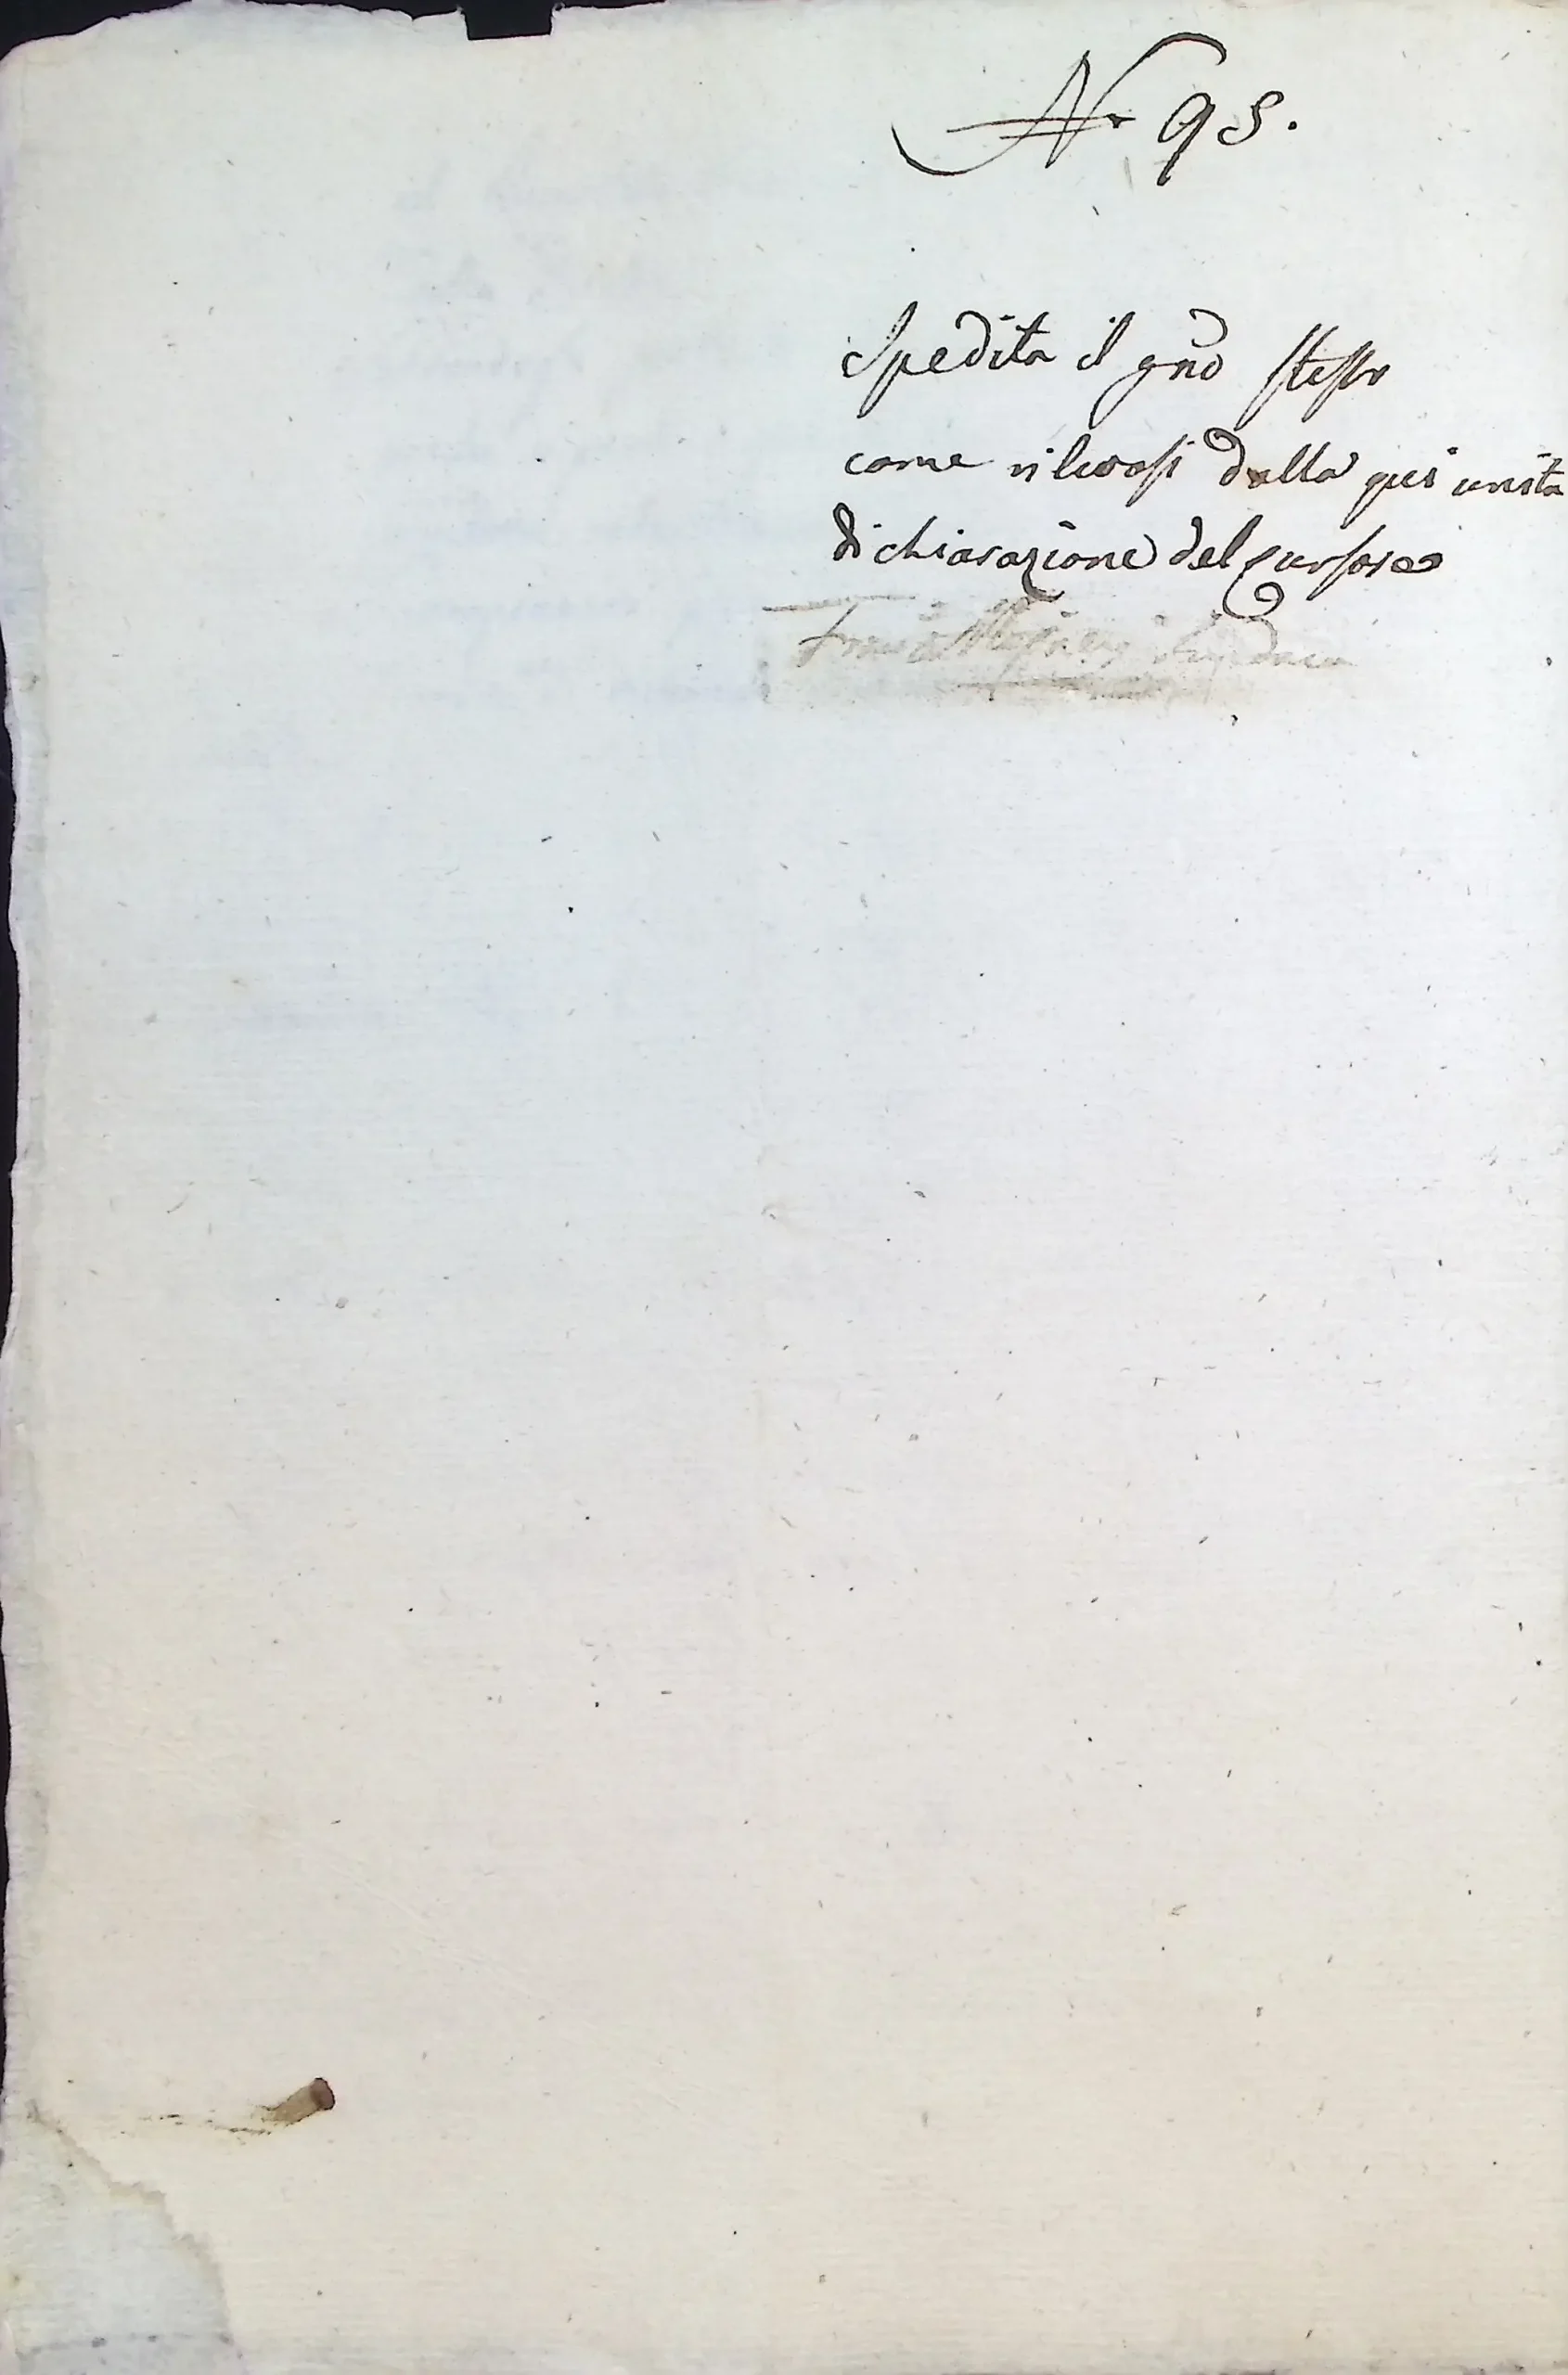 N. 95.
Spedita il gno stesso
come rilevasi dalla qui unita
dichiarazione del cursore